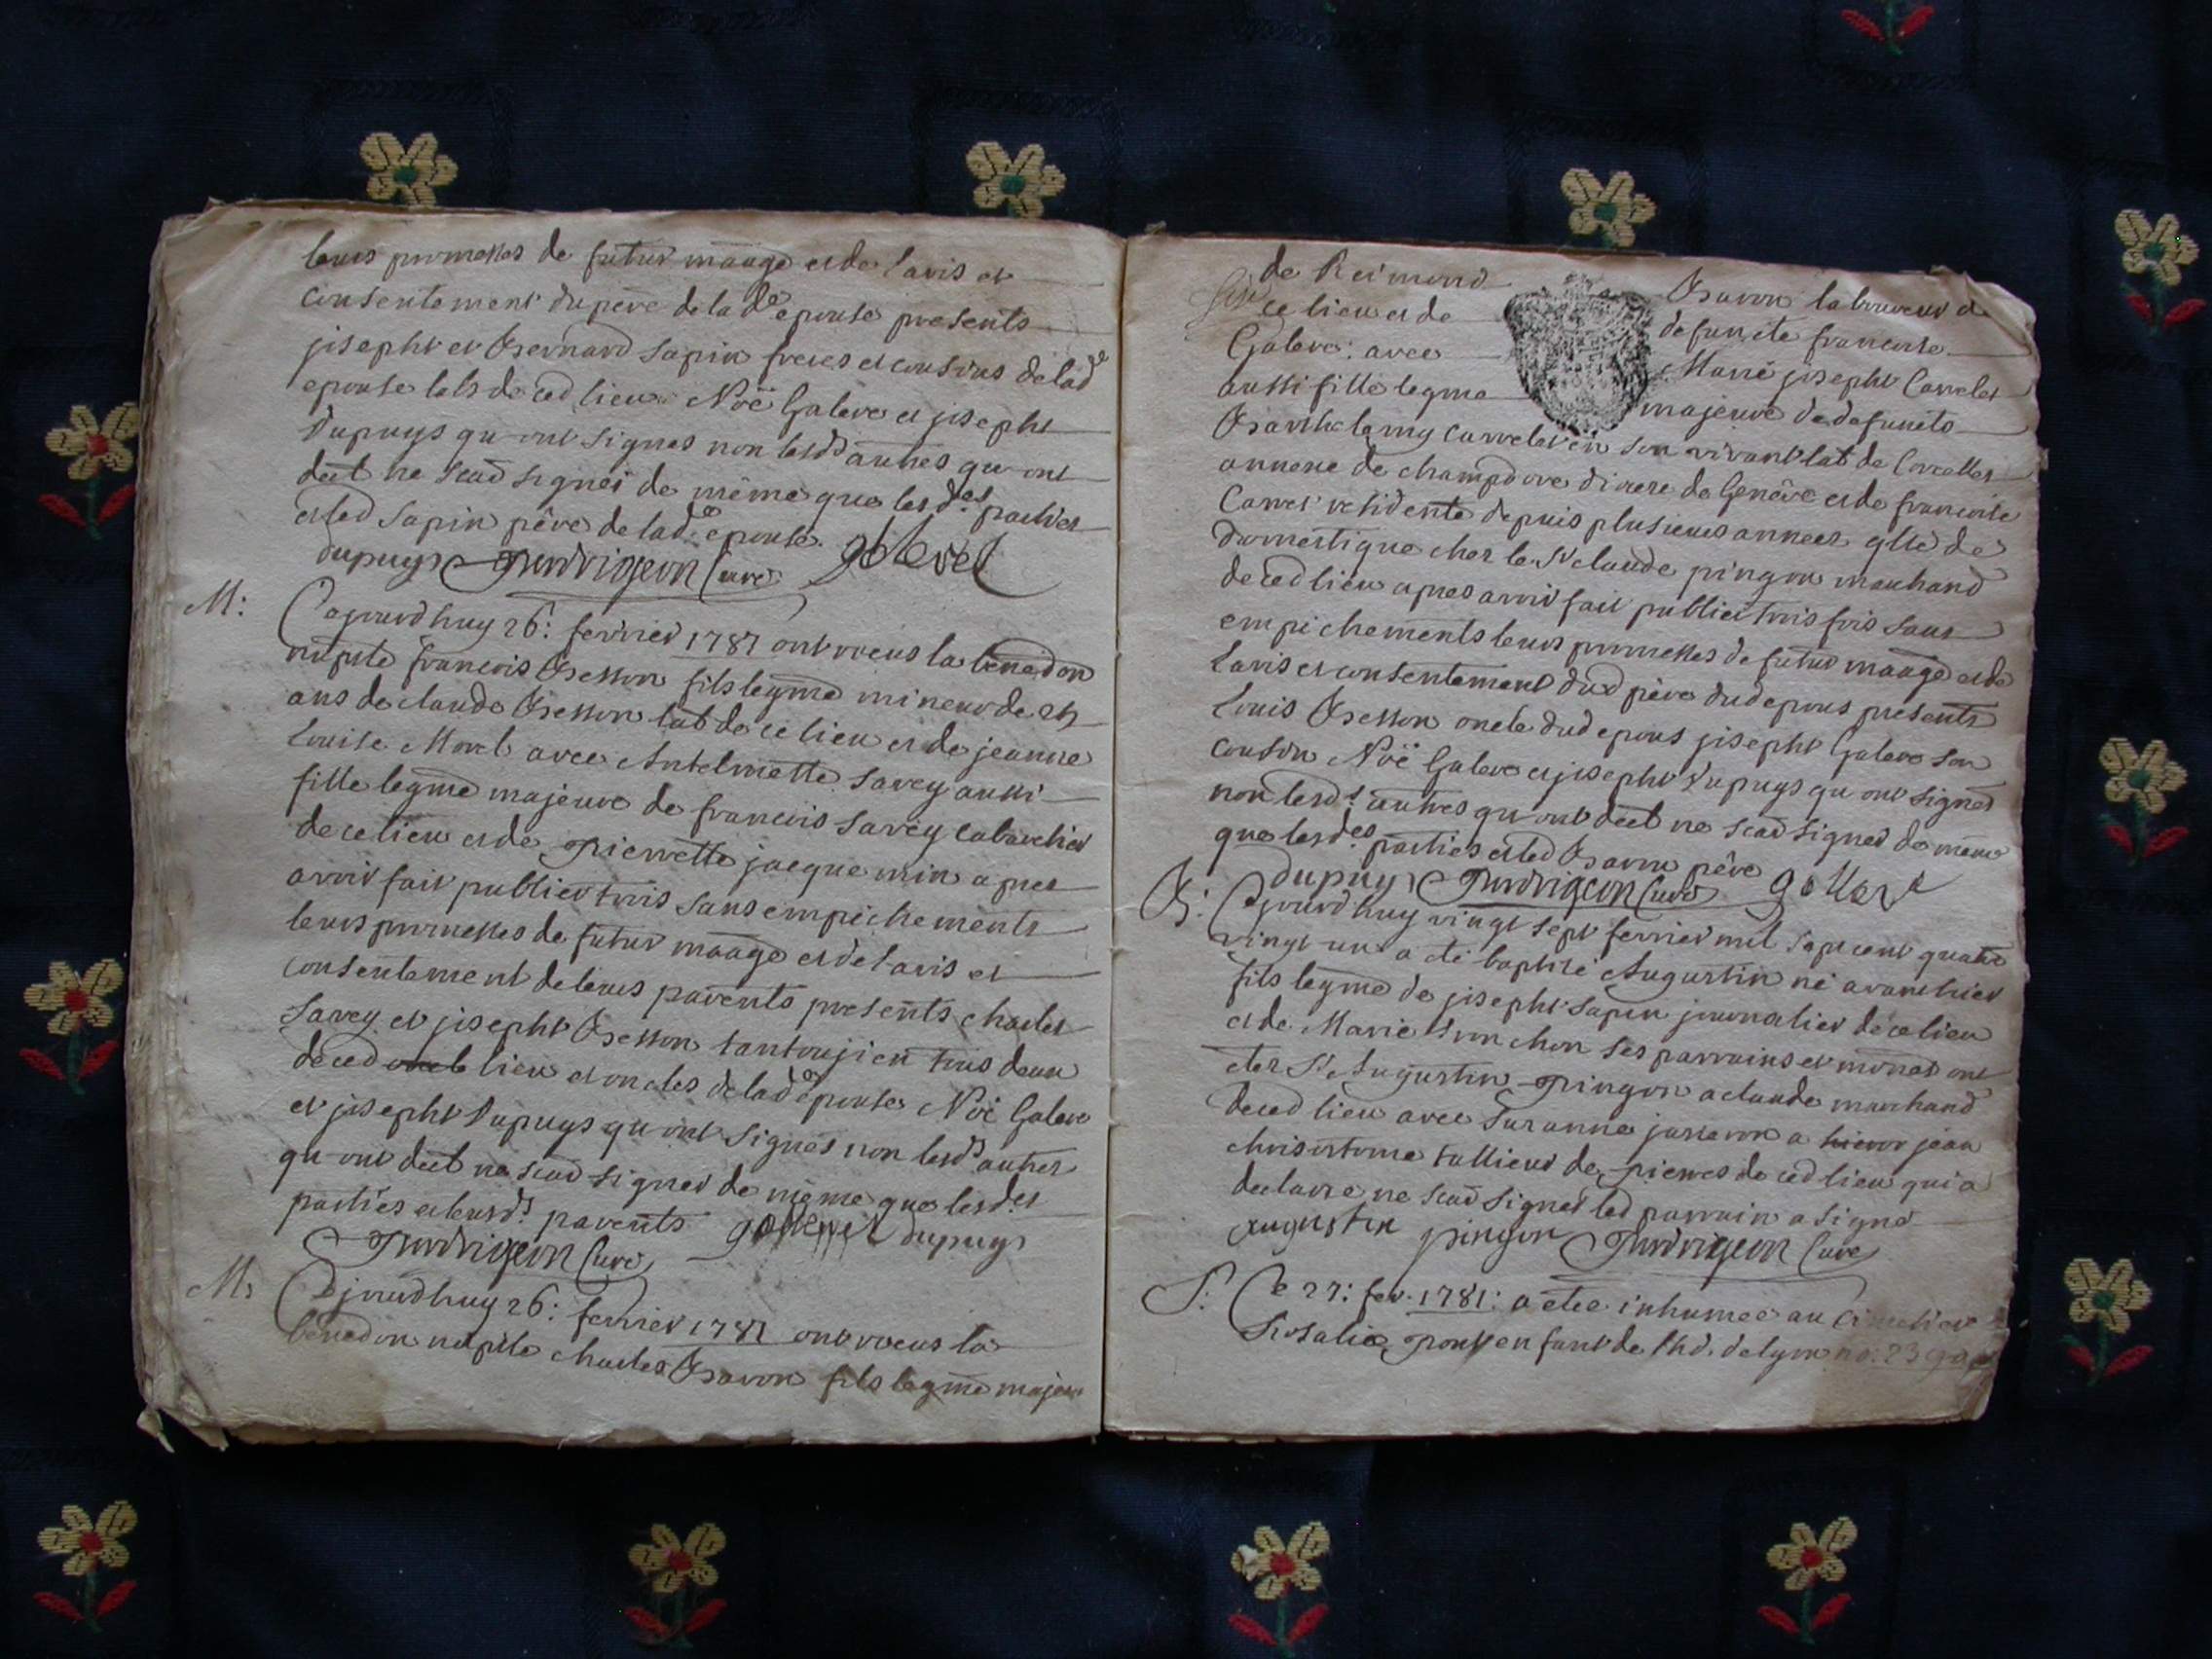 leurs promesses de futur maage et de l'avis et
consentement du père de la de epouse presents
joseph et Bernard Sapin freres et cousins de lad
epouse labs de ced lieu Noë Galeve et joseph
Dupuys qu ont signes non lesds autres qu ont
declt ne scad signer de même que lesdes parties
et led Sapin père de lade epouse.
dupuys Curé
M: Cejourdhuy 26: fevrier 1781 ont receus la bened on
nuptle francois Besson fils legme mineur de
ans de claude Besson lab de ce lieu et de jeanne
Louise Morel avec Antelmette Savey aussi
fille legme majeure de francois Savey cabaretier
de ce lieu et de pierrette jacquemin apres
avoir fait publier trois sans empichements
leurs promesses de futur maage et de l'avis et
consentement de leurs parents presents charles
Savey et joseph Besson tous deux
de ced lieu et oncles de lade epouse Noë Galeve
et joseph Dupuys qu ont signes non lesds autres
qu ont declt ne scad signer de même que lesdes
parties et leursds parents dupuys
Curé
M: Cejourdhuy 26: fevrier 1781 ont receus la
benedon nuptle charles Bavon fils legme majeur
de Reimond Bavon laboureur de
ce lieu et de defuncte francoise
Galeve: avec Marie joseph Carrelet
aussi fille legme majeure de defuncts
Barthelemy Carrelet en son vivant lab de Corcelles
annexe de champdore diocese de Genêve et de francoise
Carret residente depuis plusieurs années qlté de
domestique chez le Sr claude pingon marchand
de ced lieu apres avoir fait publier trois fois sans
empichements leurs promesses de futur maage et de
l'avis et consentement dud père dud epous presents
Louis Besson oncle dud epous joseph Galeve son
cousin Noë Galeve et joseph Dupuys qu ont signes
non lesds autres qu ont declt ne scad signer de même
que lesdes parties et led Bavon père
dupuys Curé
B: Cejourdhuy vingt sept fevrier mil sept cent quatre
vingt un a été baptisé Augustin né avant hier
fils legme de joseph Sapin journalier de ce lieu
et de Marie ses parrains et
eter Sr Augustin pingon a claude marchand
de ced lieu avec Suzanne a jean
chrisostome tallieur de pierres de ced lieu qui a
declare ne scad signer led parrain a signé
augustin pingon Curé
S: Ce 27: fev. 1781: a etee inhumee au cimetier
Rosalie enfant de lhd. de lyon no: 23